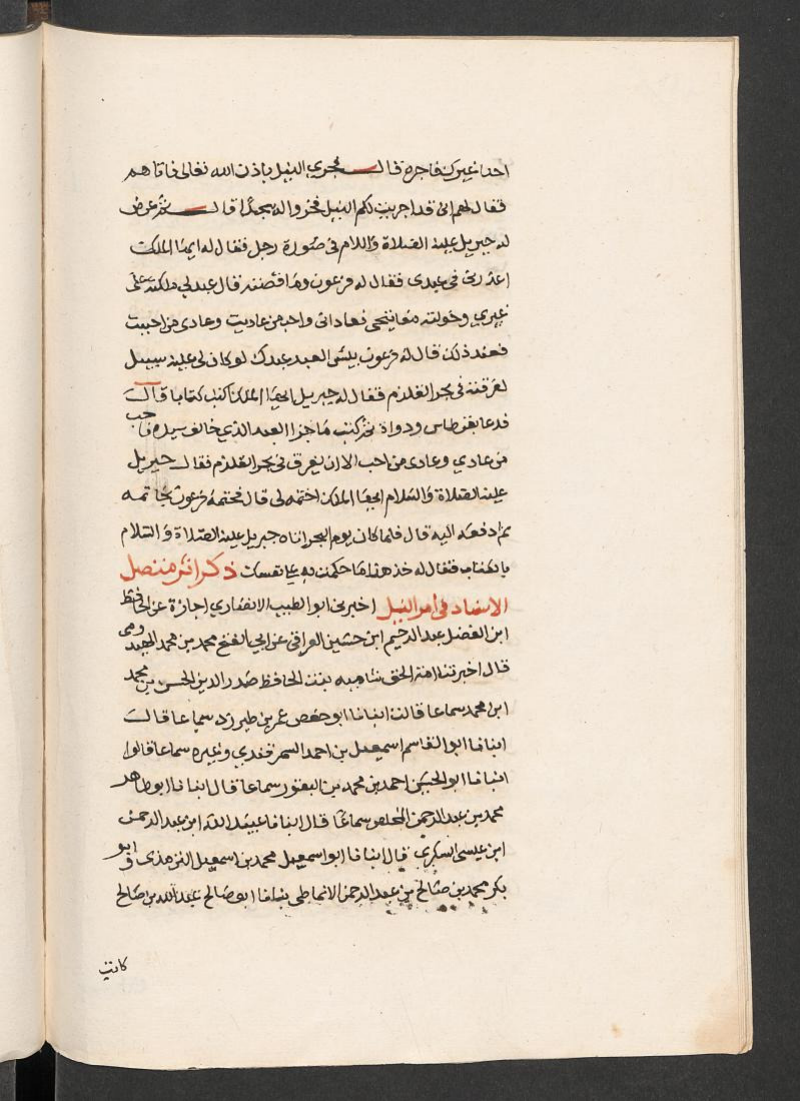 احدا غيرك فاجره قال فجري النيل باذن الله تعالى فاتاهم
فقال لهم انى قد اجريت لكم النيل فخروا له سجدا قال ثم عرض
له جبريل عليه الصلاة والسلام فى صورة رجل فقال له ايها الملك
اعدنى فى عبدى فقال له فرعون وما قصته قال عبد لي ملكته على
غيري وخولته مفاتيحى فعادانى واحب من عاديت وعادى من احببت
فعند ذلك قال له فرعون بيس العبد عبدك لو كان لى عليه سبيل
لغرقته فى بحر القلزم فقال له جبريل ايها الملك اكتب كتابا قال
فدعا بقرطاس ودواة ثم كتب ما جزا العبد الذي خالف سيده فاحب
من عادي وعادى من احب الا ان يغرق فى بحر القلزم فقال جبريل
عليه الصلاة والسلام ايها الملك اختمه لى قال فختمه فرعون بخاتمه
ثم دفعه اليه قال فلما كان يوم البحر اتاه جبريل عليه الصلاة والسلام
بالكتاب فقال له خذ هذا ما حكمت به على نفسك ذكر اثر متصل
الاسناد فى امر النيل اخبرنى ابو الطيب الانصاري اجازة عن الحافظ
ابى الفضل عبد الرحيم ابن حسين العراقى عن ابي الفتح محمد بن محمد الميدومى
قال اخبرتنا امة الحق شامية بنت الحافظ صدر الدين الحسن بن محمد
ابن محمد سماعا قالت انبانا ابو حفص عمر بن طبرزد سماعا قال
انبانا ابو القاسم اسمعيل بن احمد السمرقندي وغيره سماعا قالوا
انبانا ابو الحسن احمد بن محمد بن النقور سماعا قال انبانا ابو طاهر
محمد بن عبد الرحمن المخلص سماعا قال انبانا عبيد الله ابن عبد الرحمن
ابن عيسى السكري قال انبانا ابو اسمعيل محمد بن اسمعيل الترمذى وابو
بكر محمد بن صالح بن عبد الرحمن الانماطى انبانا ابو صالح عبد الله بن صالح
كاتب